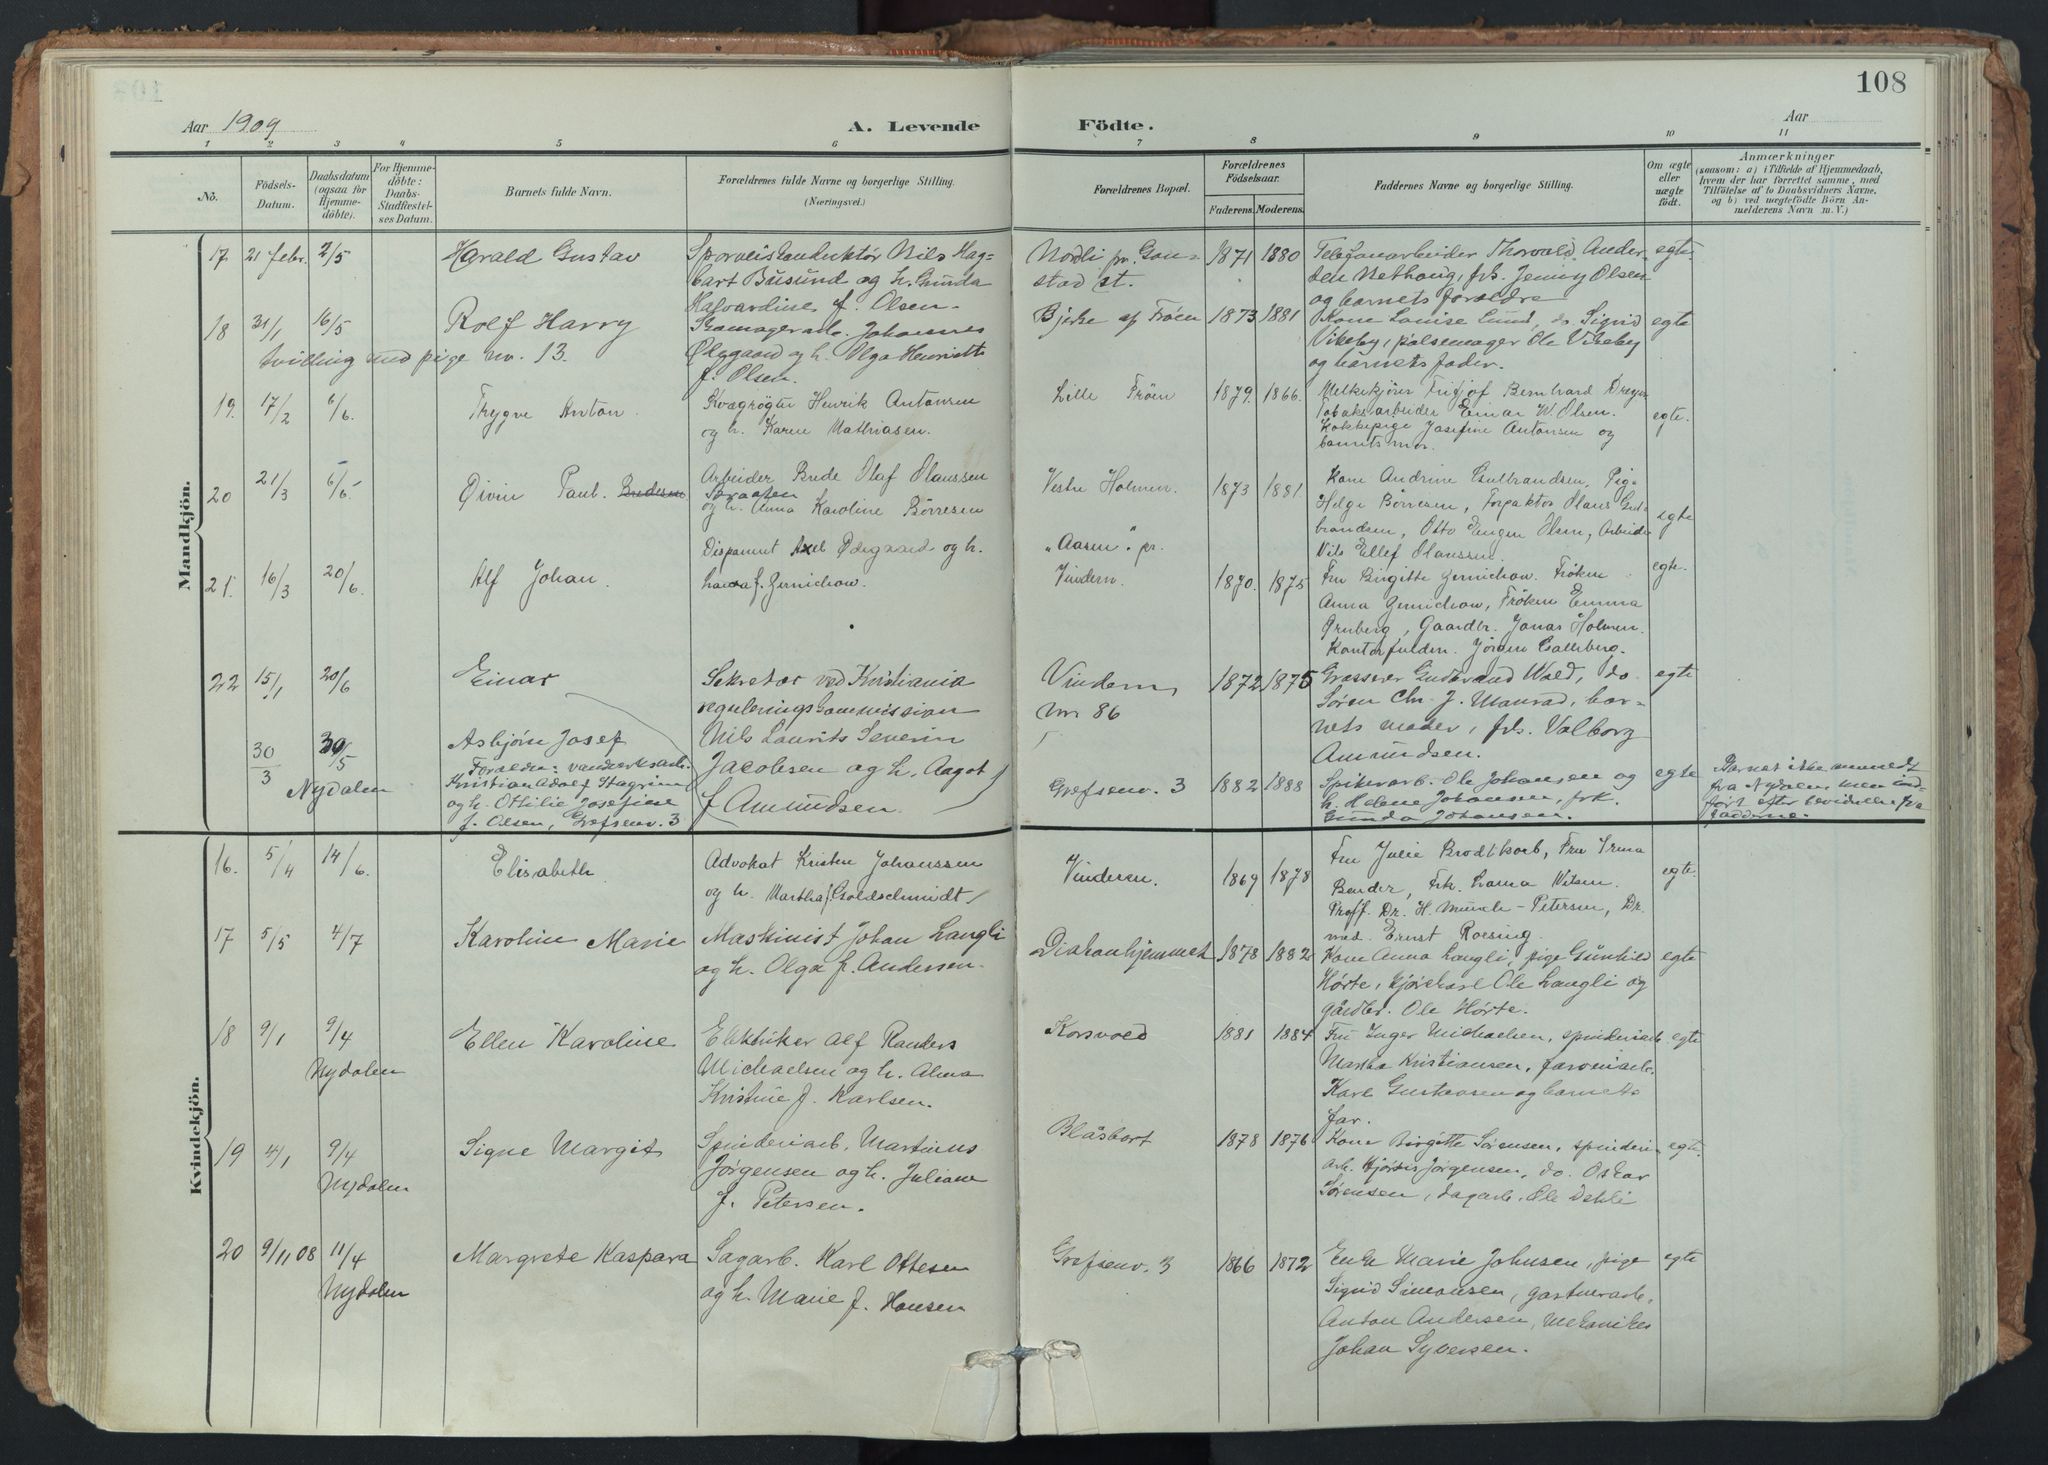 108
Aar 1909
A. Levende
Födte.
Aar
1 2 3 4 5 6 7 8 9 10 11
No.
Födsels-Datum.
Daabsdatum (ogsaa for Hjemmedöbte).
For Hjemmedöbte: Daabs-Stadfæstelses Datum.
Barnets fulde Navn.
Forældrenes fulde Navne og borgerlige Stilling.
(Næringsvei.)
Forældrenes Bopæl.
Forældrenes Födselsaar.
Faderens. Moderens.
Faddernes Navne og borgerlige Stilling.
Om ægte eller uægte födt.
Anmærkninger
(saasom: a) i Tilfælde af Hjemmedaab, hvem der har forrettet samme, med Tilföielse af to Daabsvidners Navne, og b) ved uægtefödte Börn Anmelderens Navn m. V.)
Mandkjön.
17 21 febr. 2/5 Harald Gustav
Sporveiskonduktør Nils Hag-
bart Busund og h. Gunda
Halvardine f. Olsen.
Nordli pr. Gau-
stad st.
1871 1880
Telefonarbeider Thorvald Ander-
sen Nethaug, frk. Jenny Olsen
og barnets forældre
egte
18 31/1 16/5 Rolf Harry
tvilling med pige no. 13.
Skomagerarb. Johannes
Øhygaard og h. Olga Henriette
f. Olsen.
Bjerke af Frøen 1873 1881
Kone Louise Lund, do Sigrid
Vikeby, pølsemager Ole Vikeby
og barnets fader.
egte
19. 17/2 6/6. Trygve Anton.
Kvægrøgter Henrik Antonsen
og h. Karen Mathiasen.
Lille Frøen 1879. 1866.
Melkekjører Fridjof Bernhard Dreyer
Tobaksarbeider Einar W. Olsen.
Kokkepige Josefine Antonsen og
barnets mor.
egte.
20 21/3 6/6 Øivin Paul.
Arbeider Bede Olaf Olaussen
og h. Anna Karoline Børresen
Vestre Holmen. 1873 1881.
Kone Andrine Gulbrandsen, Pige
Helga Børresen, Forpakter Olaus Gul-
brandsen, Otto Eugen Olsen, Arbeider
Nils Ellef Olaussen
egte
21. 16/3 20/6. Alf Johan.
Disponent Axel Ødegaard og h.
Laura f. Gernichow.
"Aasen". pr.
Vindern. 1870. 1875
Fru Birgitte Gernichow. Frøken
Anna Gernichow, Frøken Emma
Ørnberg, Gaardbr. Jonas Holmen.
Kontorfuldm. Jörgen Galleberg.
egte.
22 15/1 20/6 Einar
Sekretær ved Kristiania
reguleringskommission
Nils Laurits Severin
Jacobsen og h. Aagot
f. Amundsen.
Vindern
no 86
1872 1875
Grosserer Gudbrand Wold, do
Søren Chr. J. Monrad, bar-
nets moder, frk. Valborg
Amundsen.
egte
30/3 30/5
Nydalen
Asbjørn Josef
Forældre: vandverksarb.
Kristian Adolf Hagrim
og h. Ottilie Josefine
f. Olsen, Grefsenv. 3
Grefsenv. 3 1882 1888
Spikerarb. Ole Johansen og
h. Helene Johansen, frk.
Gunda Johansen.
egte
Barnet ikke anmeldt
fra Nydalen men ind-
ført efter bevidnelse fra
fadderne.
Kvindekjön.
16. 5/4 14/6. Elisabeth
Advokat Kristen Johanssen
og h. Martha f. Goldschmidt
Vinderen. 1869 1878
Fru Julie Brodtkorb, Fru Irma
Bender, Frk. Laura Wilsen.
Proff. Dr. H. Munch-Petersen, Dr.
med. Ernst Roesing.
egte.
17 5/5 4/7 Karoline Marie
Maskinist Johan Langli
og h. Olga f. Andersen.
Diakonhjemmet 1878 1882
Kone Anna Langli, pige Gunhild
Hørte, kjørekarl Ole Langli og
gårdbr. Ole Hørte.
egte
18 9/1 9/4
Nydalen
Ellen Karoline
Elektriker Alf Randers
Michaelsen og h. Alma
Kristine f. Karlsen.
Korsvold 1881 1884
Fru Inger Michaelsen, spinderiarb.
Martha Kristiansen, farveriarb.
Karl Gustavsen og barnets
far.
egte
19 4/1 9/4
Nydalen
Signe Margit
Spinderiarb. Martinus
Jørgensen og h. Juliane
f. Petersen.
Blåsbort 1878 1876
Kone Birgitte Sørensen, spinderi-
arb. Hjørdis Jørgensen, do. Oskar
Sørensen, dagarb. Ole Dehli
egte.
20 9/11 08 11/4
Nydalen
Margrete Kaspara
Sagarb. Karl Ottesen
og h. Marie f. Hansen
Grefsenv. 3 1866 1872
Enke Marie Johnsen, pige
Sigrid Simonsen, gartnerarb.
Anton Andersen, mekaniker
Johan Syversen.
egte